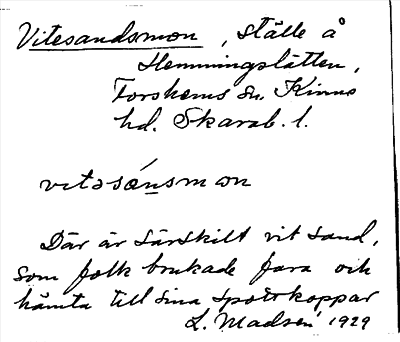 Vitesandsmon, ställe å
Hemmingslätten,
Forshems sn. Kinne
hd. Skarab. l.
vitəsáṉsmon
Där är särskilt vit sand,
som folk brukade fara och
hämta till sina spottkoppar
L. Madsén 1929